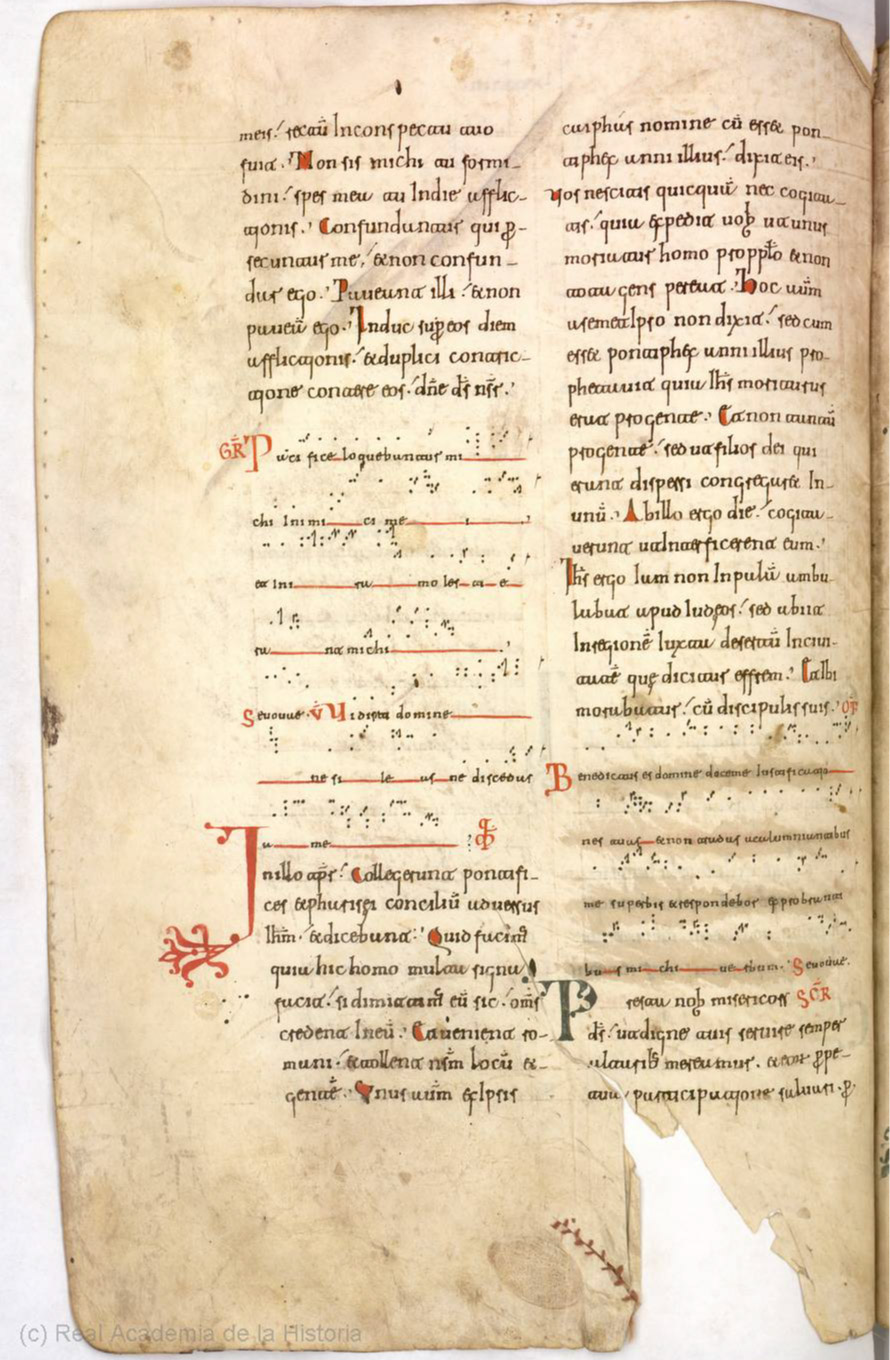 meis. rectū Inconspectu tuo
fuit. Non sis michi tu formi-
dini. spes mea tu Indie afflic-
tionis. Confundantur qui ꝑ-
secuntur me. & non confun-
dar ego. Paueant illi. & non
paueā ego. Induc suꝑ eos diem
afflictionis. & duplici contric-
tione contere eos. dn̄e ds̄ nsr̄.
GR̄ Pacifice loquebantur mi
chi Inimi ci me i
et Ini ra mo les ti e
ra nt michi
Seuouae. V̄ Uidisti domine
ne si le as ne discedas
a me
In illo tpr̄. Collegerunt pontifi-
ces & pharisei conciliū aduersus
Ihm̄. & dicebant. Quid facim'
quia hic homo multa signa
facit. si dimittim' eū sic. om̄s
credent Ineū. Et uenient ro-
mani. & tollent nsm̄ locū &
gentē. Unus aūm ex Ipsis
caiphas nomine cū esset pon-
tiphex anni illius. dixit eis.
Uos nescitis quicquā nec cogita-
tis. quia expedit uob̄ ut unus
moriatur homo pro pplo & non
tota gens pereat. Hoc aūm
asemetIpso non dixit. sed cum
esset pontiphex anni illius pro-
phetauit quia Ihs̄ moriturus
erat pro gente. Et non tantū
pro gente. sed ut filios dei qui
erant dispersi congregaret In-
unū. Ab illo ergo die. cogita-
uerunt ut Interficerent eum.
Ihs̄ ergo Iam non In palā ambu-
labat apud Iudęos. sed abiit
In regionē Iuxta desertū In ciui-
tatē quę dicitur effrem. Et ibi
morabatur. cū discipulis suis. OF̄
Benedictus es domine doceme Iustificatio
nes tuas & non tradas calumniantibus
me superbis & respondebo exprobranti
bus mi chi uerbum. Seuouae.
Presta nob̄ misericors SCR̄
ds̄. ut digne tuis seruire semper
altarib' mereamur. & eor ꝑpe-
tua participatione saluari. ꝑ
(c) Real Academia de la Historia